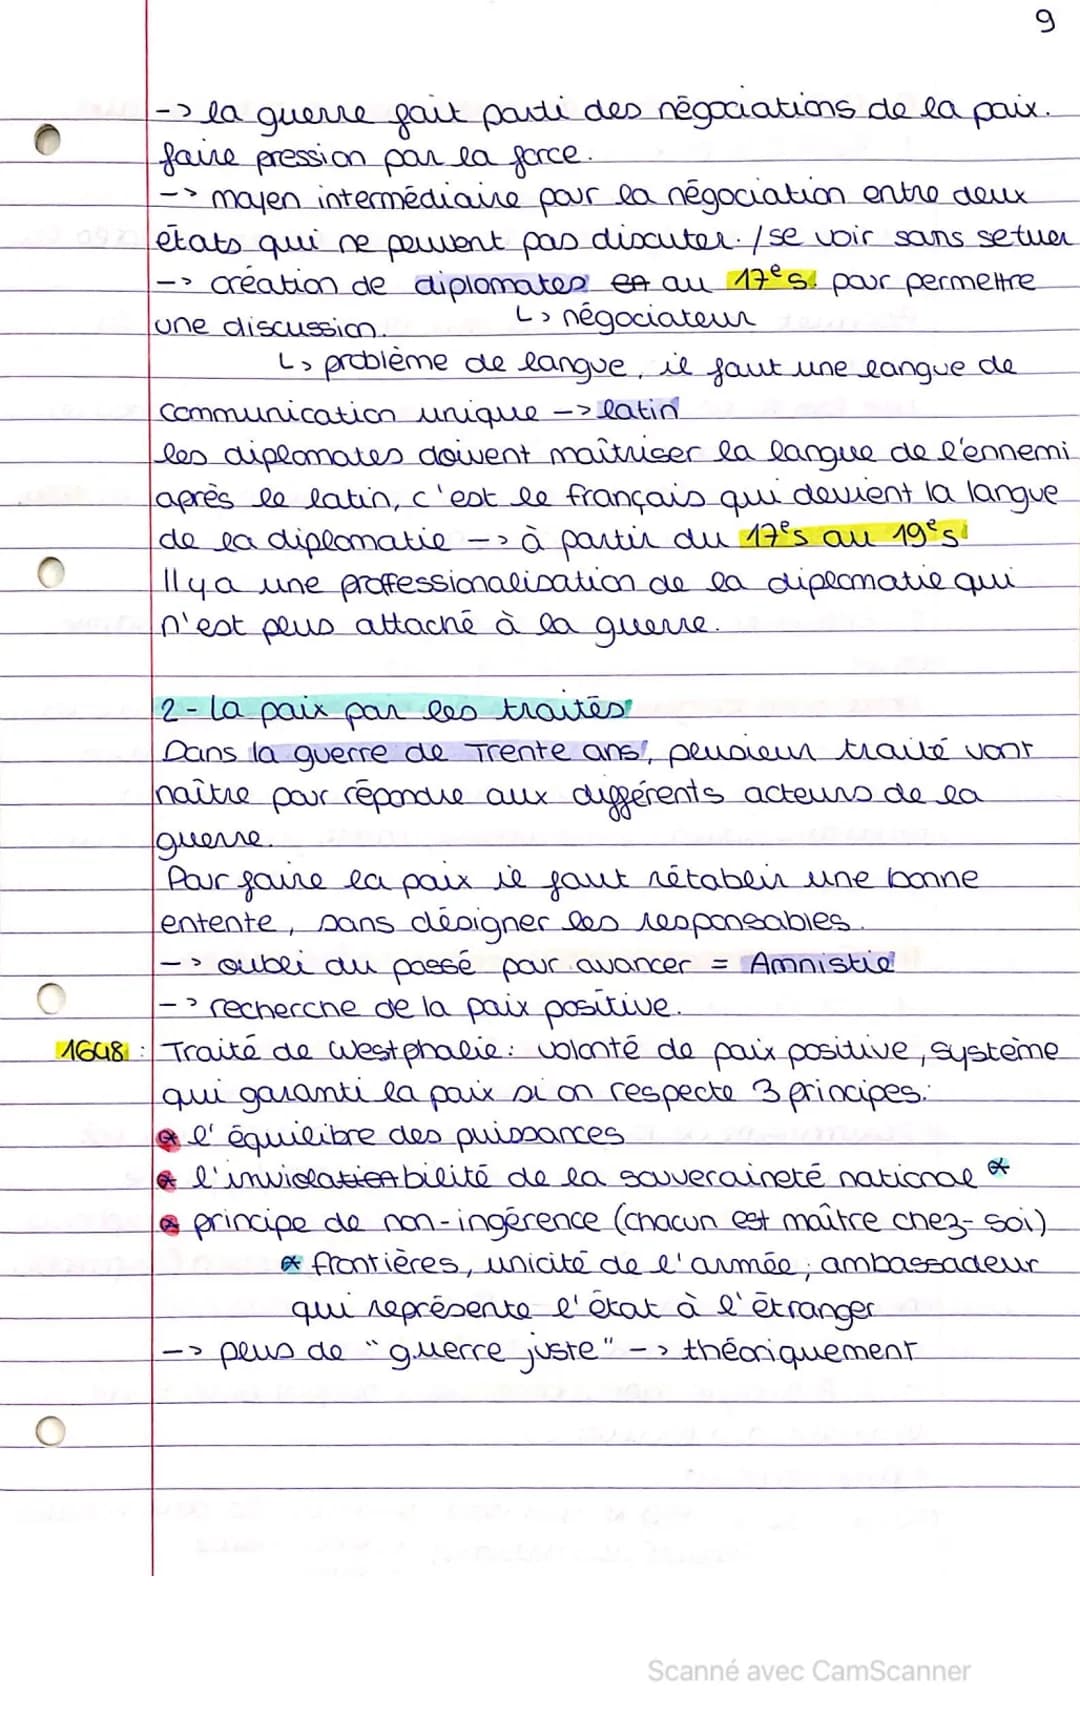 9
-> la guerre fait parti des négociations de la paix.
faire pression par la force.
-> moyen intermédiaire pour la négociation entre deux
états qui ne peuvent pas discuter. / se voir sans se tuer
-> création de diplomates en au 17e s. pour permettre
une discussion. ↳ négociateur
↳ problème de langue, il faut une langue de
communication unique -> latin
les diplomates doivent maîtriser la langue de l'ennemi
après le latin, c'est le français qui devient la langue
de la diplomatie -> à partir du 17e s au 19e s
Il y a une professionalisation de la diplomatie qui
n'est plus attaché à la guerre.
2 - La paix par les traités
Dans la guerre de Trente ans, plusieur traité vont
naître pour répondre aux différents acteurs de la
guerre.
Pour faire la paix il faut rétablir une bonne
entente, sans désigner les responsables.
-> oubli du passé pour avancer = Amnistie
-> recherche de la paix positive.
1648 : Traité de Westphalie : volonté de paix positive, système
qui garanti la paix si on respecte 3 principes :
* l'équilibre des puissances
* l'inviolation bilité de la souveraineté national *
* principe de non-ingérence (chacun est maître chez-soi)
* frontières, unicité de l'armée, ambassadeur
qui représente l'état à l'étranger
-> plus de "guerre juste" -> théoriquement
Scanné avec CamScanner